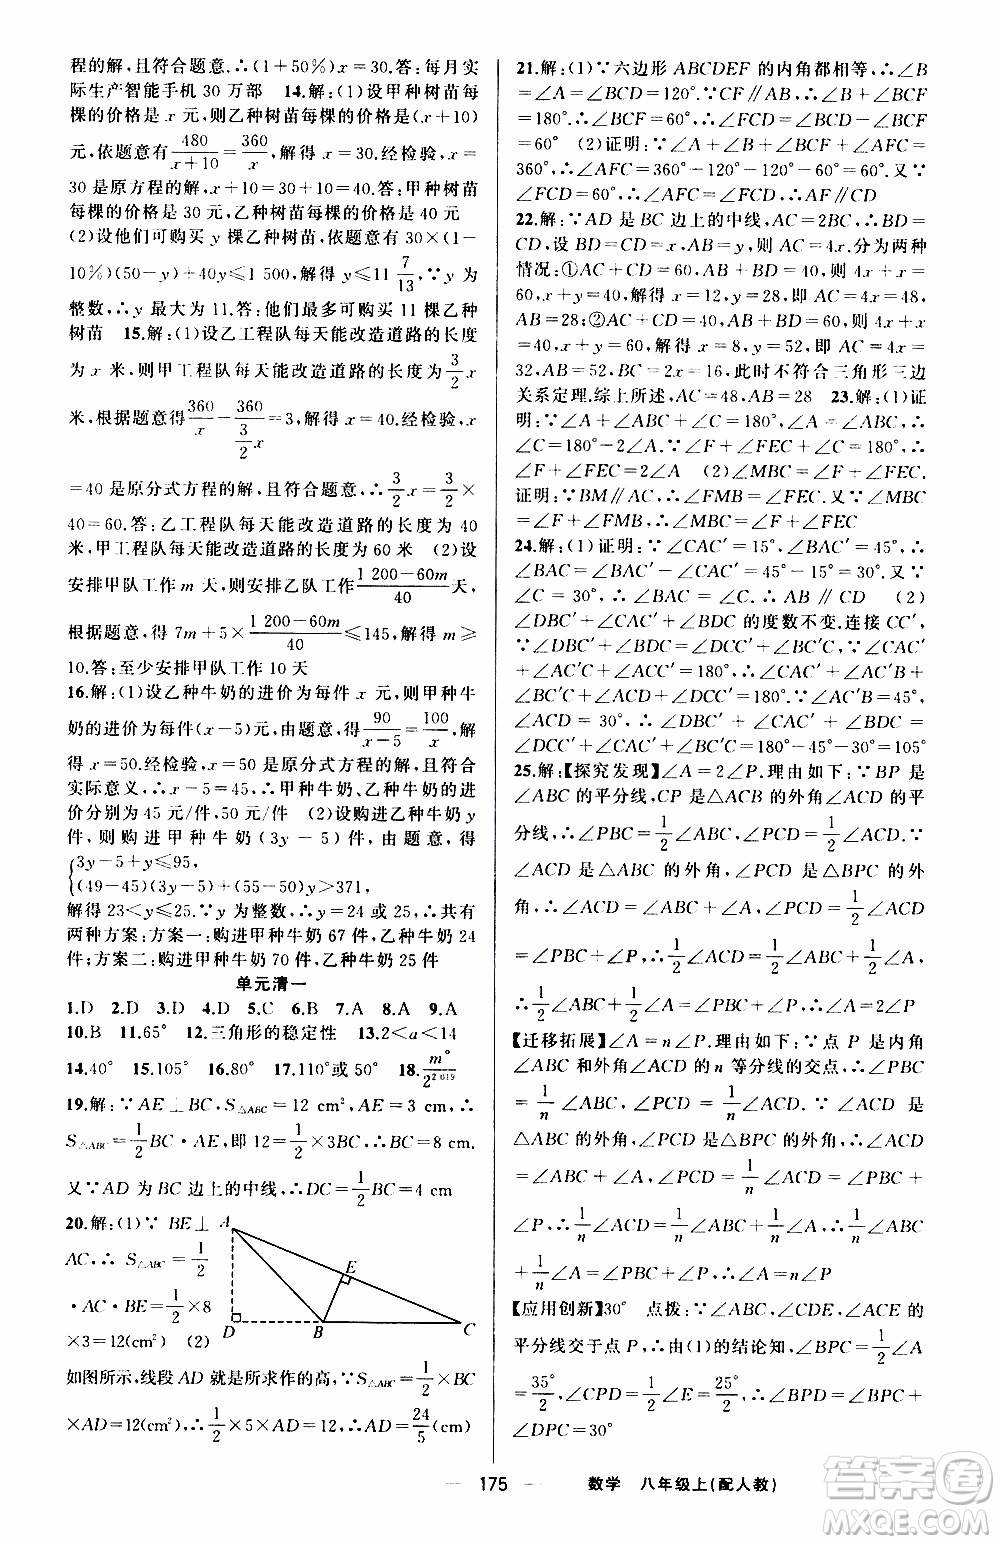 程的解,且符合题意.∴(1+50%)x=30.答:每月实
际生产智能手机 30 万部 14.解:(1)设甲种树苗每
棵的价格是 x 元,则乙种树苗每棵的价格是(x+10)
元,依题意有480/(x+10)=360/x,解得 x=30.经检验,x=
30 是原方程的解,且符合题意.答:甲种树苗
每棵的价格是 30 元,乙种树苗每棵的价格是 40 元
(2)设他们可购买 y 棵乙种树苗,则有 30×(1-
10%)(50-y)+40y≤1 500,解得 y≤11 7/13,∵y 为
整数,∴y 最大为 11.答:他们最多可购买 11 棵乙种
树苗 15.解:(1)设乙工程队每天能改造道路的长度
为 x 米,则甲工程队每天能改造道路的长度为 3/2 x
米,根据题意得360/x-360/(3/2 x)=3,解得 x=40,经检验,x
=40 是原分式方程的解,且符合题意,∴3/2 x=3/2×
40=60.答:乙工程队每天能改造道路的长度为 40
米,甲工程队每天能改造道路的长度为 60 米 (2)设
安排甲队工作 m 天,则安排乙队工作(1 200-60m)/40天,
根据题意,得 7m+5×(1 200-60m)/40≤145,解得 m≥
10.答:至少安排甲队工作 10 天
16.解:(1)设乙种牛奶的进价为每件 x 元,则甲种牛
奶的进价为每件(x-5)元,由题意,得90/(x-5)=100/x,解
得 x=50.经检验,x=50 是原分式方程的解,且符合
实际意义,∴x-5=45.答:甲种牛奶、乙种牛奶的进
价分别为 45 元/件,50 元/件 (2)设购进乙种牛奶 y
件,则购进甲种牛奶(3y-5)件,由题意,得
{3y-5+y≤95,
(49-45)(3y-5)+(55-50)y>371,
解得 23<y≤25.∵y 为整数,∴y=24 或 25,∴共有
两种方案:方案一:购进甲种牛奶 67 件,乙种牛奶 24
件;方案二:购进甲种牛奶 70 件,乙种牛奶 25 件
单元清一
1.D 2.D 3.D 4.D 5.C 6.B 7.A 8.A 9.A
10.B 11.65° 12.三角形的稳定性 13.2<a<14
14.40° 15.105° 16.80° 17.110°或 50° 18.m°/2^2019
19.解:∵AE⊥BC,S△ABC=12 cm²,AE=3 cm,∴
S△ABC=1/2 BC·AE,即 12=1/2×3BC,∴BC=8 cm.
又∵AD 为 BC 边上的中线,∴DC=1/2 BC=4 cm
20.解:(1)∵ BE⊥
AC,∴ S△ABC=1/2
·AC·BE=1/2×8
×3=12(cm²) (2)
A
E
D B C
如图所示,线段 AD 就是所求作的高,∵S△ABC=1/2×BC
×AD=12(cm²),∴1/2×5×AD=12,∴AD=24/5(cm)
21.解:(1)∵六边形 ABCDEF 的内角都相等,∴∠B
=∠A=∠BCD=120°.∵CF∥AB,∴∠B+∠BCF
=180°.∴∠BCF=60°,∴∠FCD=∠BCD-∠BCF
=60° (2)证明:∵∠A+∠B+∠BCF+∠AFC=
360°,∴∠AFC=360°-120°-120°-60°=60°.又∵
∠FCD=60°,∴∠AFC=∠FCD,∴AF∥CD
22.解:∵AD 是 BC 边上的中线,AC=2BC,∴BD=
CD,设 BD=CD=x,AB=y,则 AC=4x.分为两种
情况:①AC+CD=60,AB+BD=40,则 4x+x=
60,x+y=40,解得 x=12,y=28,即 AC=4x=48,
AB=28;②AC+CD=40,AB+BD=60,则 4x+x
=40,x+y=60,解得 x=8,y=52,即 AC=4x=
32,AB=52,BC=2x=16,此时不符合三角形三边
关系定理.综上所述,AC=48,AB=28 23.解:(1)证
明:∵∠A+∠ABC+∠C=180°,∠A=∠ABC,∴
∠C=180°-2∠A.∵∠F+∠FEC+∠C=180°,∴
∠F+∠FEC=2∠A (2)∠MBC=∠F+∠FEC.
证明:∵BM∥AC,∴∠FMB=∠FEC.又∵∠MBC
=∠F+∠FMB,∴∠MBC=∠F+∠FEC
24.解:(1)证明:∵∠CAC′=15°,∠BAC′=45°,∴
∠BAC=∠BAC′-∠CAC′=45°-15°=30°.又∵
∠C=30°,∴∠BAC=∠C.∴AB∥CD (2)
∠DBC′+∠CAC′+∠BDC 的度数不变.连接 CC′,
∵∠DBC′+∠BDC=∠DCC′+∠BC′C,∠CAC′
+∠AC′C+∠ACC′=180°,∴∠CAC′+∠AC′B+
∠BC′C+∠ACD+∠DCC′=180°.∵∠AC′B=45°,
∠ACD=30°,∴∠DBC′+∠CAC′+∠BDC=
∠DCC′+∠BC′C+∠CAC′=180°-45°-30°=105°
25.解:【探究发现】∠A=2∠P.理由如下:∵BP 是
∠ABC 的平分线,CP 是△ACB 的外角∠ACD 的平
分线,∴∠PBC=1/2∠ABC,∠PCD=1/2∠ACD.∵
∠ACD 是△ABC 的外角,∠PCD 是△BPC 的外
角,∴∠ACD=∠ABC+∠A,∴∠PCD=1/2∠ACD
=∠PBC+∠P,∴1/2∠ACD=1/2∠ABC+1/2∠A,
∴1/2∠ABC+1/2∠A=∠PBC+∠P,∴∠A=2∠P
【迁移拓展】∠A=n∠P.理由如下:∵点 P 是内角
∠ABC 和外角∠ACD 的 n 等分线的交点,∴∠PBC
=1/n∠ABC,∠PCD=1/n∠ACD.∵∠ACD 是
△ABC 的外角,∠PCD 是△BPC 的外角,∴∠ACD
=∠ABC+∠A,∠PCD=1/n∠ACD=∠PBC+
∠P,∴1/n∠ACD=1/n∠ABC+1/n∠A,∴1/n∠ABC
+1/n∠A=∠PBC+∠P,∴∠A=n∠P
【应用创新】30° 点拨:∵∠ABC,∠CDE,∠ACE 的
平分线交于点 P,∴由(1)的结论知,∠BPC=1/2∠A
=35°/2,∠CPD=1/2∠E=25°/2,∴∠BPD=∠BPC+
∠DPC=30°
175 数学 八年级上(配人教)
答案圈
MXQE.COM